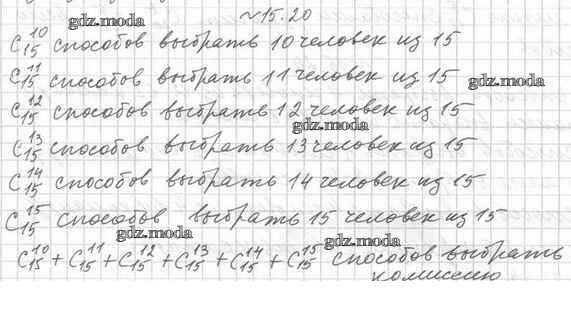 №15.20
gdz.moda
C₁₅¹⁰ способов выбрать 10 человек из 15
C₁₅¹¹ способов выбрать 11 человек из 15
gdz.moda
C₁₅¹² способов выбрать 12 человек из 15
gdz.moda
C₁₅¹³ способов выбрать 13 человек из 15
C₁₅¹⁴ способов выбрать 14 человек из 15
C₁₅¹⁵ способов выбрать 15 человек из 15
gdz.moda
gdz.moda
C₁₅¹⁰ + C₁₅¹¹ + C₁₅¹² + C₁₅¹³ + C₁₅¹⁴ + C₁₅¹⁵ способов выбрать
комиссию